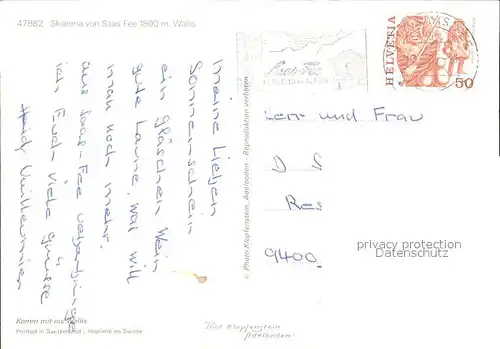 47982 Skiarena von Saas Fee 1800 m. Wallis
Meine Lieben
Sonnenschein
ein Gläschen Wein
gute Laune, was will
man noch mehr.
aus Saas-Fee
ich Euch viele Grüsse
Heidi
HELVETIA
50
Saas-Fee
Herr und Frau
D S
Res
9400
privacy protection
Datenschutz
© Photo Klopfenstein, Adelboden - Reproduktion verboten
Komm mit ins Wallis
Printed in Switzerland - Imprimé en Suisse
Photo Klopfenstein
Adelboden